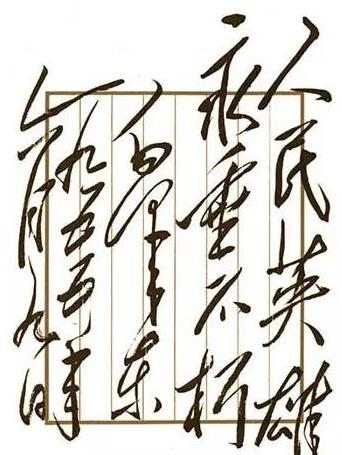 人民英雄
永垂不朽
毛泽东
一九五五年
六月九